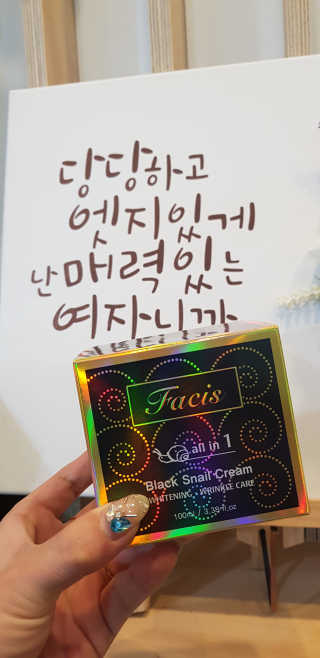 당당하고
엣지있게
난 매력있는
여자니까
Facis
all in 1
Black Snail Cream
WHITENING · WRINKLE CARE
100ml / 3.38fl.oz